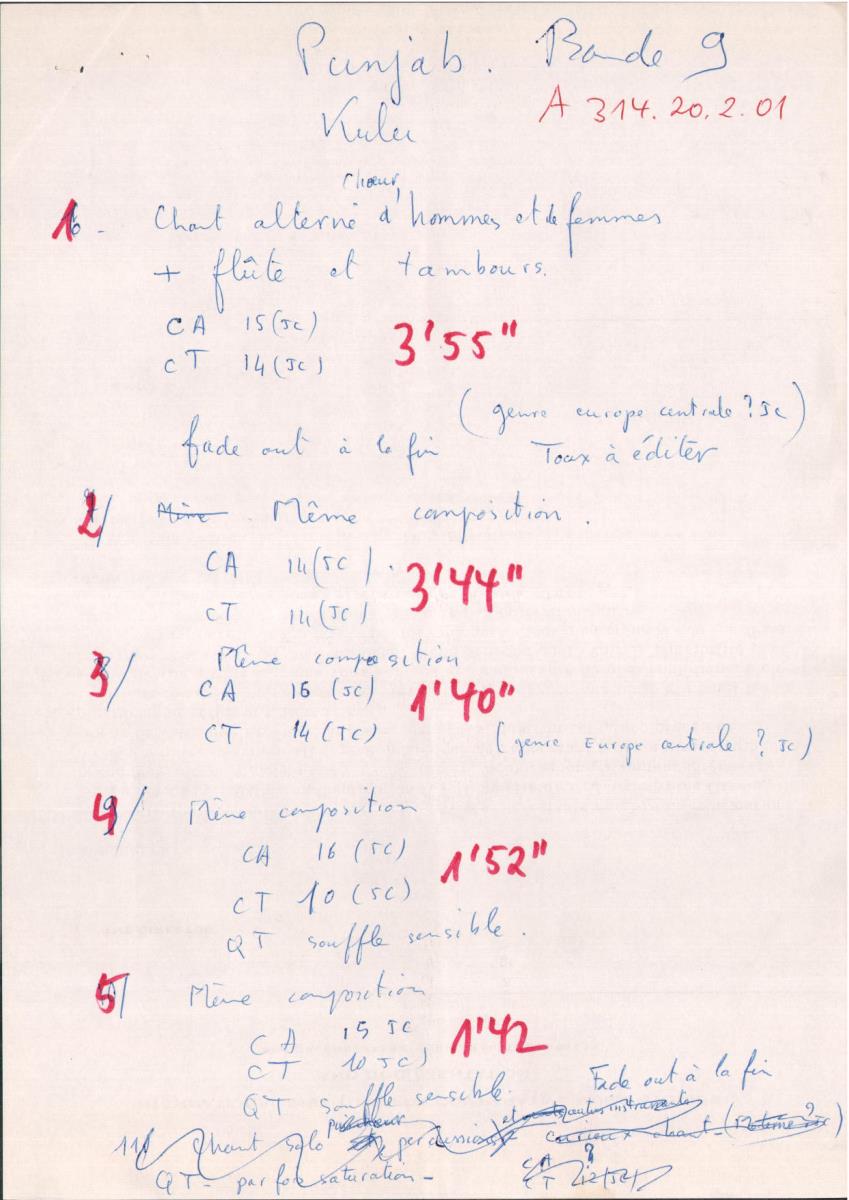 Punjab. Bande 9
A 314.20.2.01
Kulu
Chœur,
1 - Chant alterné d'hommes et de femmes
+ flûte et tambours.
CA 15 (JC)
3'55"
CT 14 (JC)
(genre europe centrale ? JC)
fade out à la fin Toux à éditer
2/ Même Même composition.
CA 14 (JC).
3'44"
CT 14 (JC)
3/ Même composition
CA 16 (JC)
1'40"
CT 14 (JC)
(genre Europe centrale ? JC)
4/ Même composition
CA 16 (JC)
1'52"
CT 10 (JC)
QT souffle sensible.
5/ Même composition
CA 15 JC
1'42
CT 10 JC)
Fade out à la fin
QT souffle sensible.
11/ Chant solo puis chœur percussions et autres instruments curieux chant
QT - parfois saturation -
CA ?
CT 12 (JC)